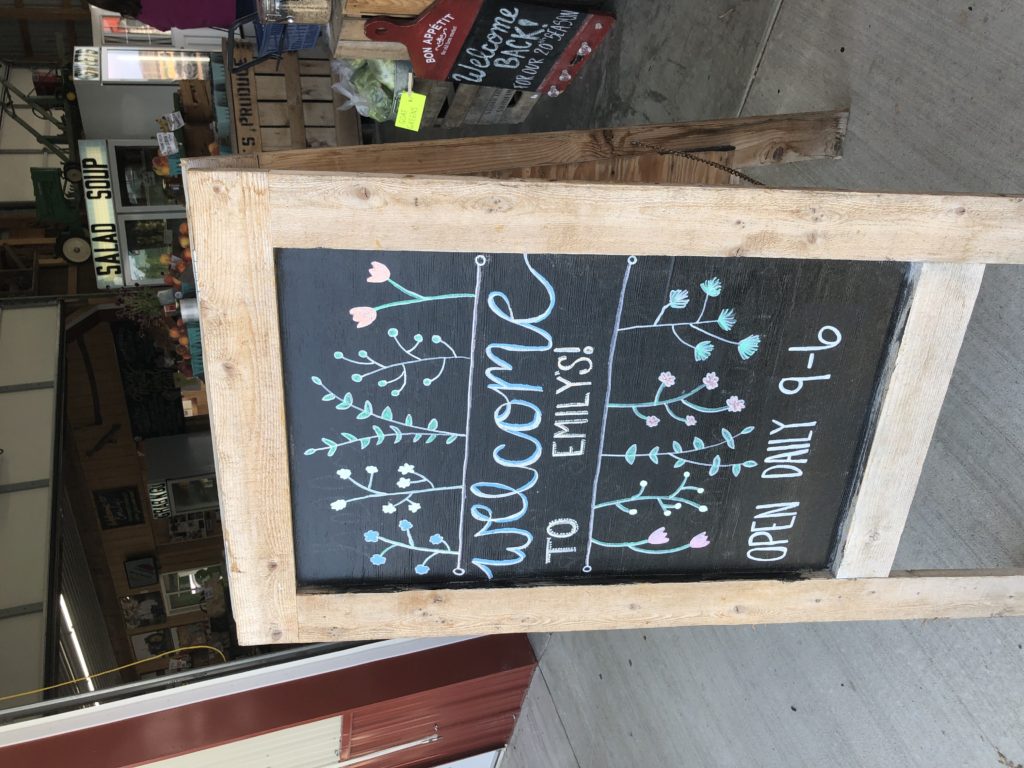 Welcome
TO EMILY'S!
OPEN DAILY 9-6
BON APPÉTIT
Welcome
BACK!
FOR OUR 20th SEASON
SALAD SOUP
PRODUCE